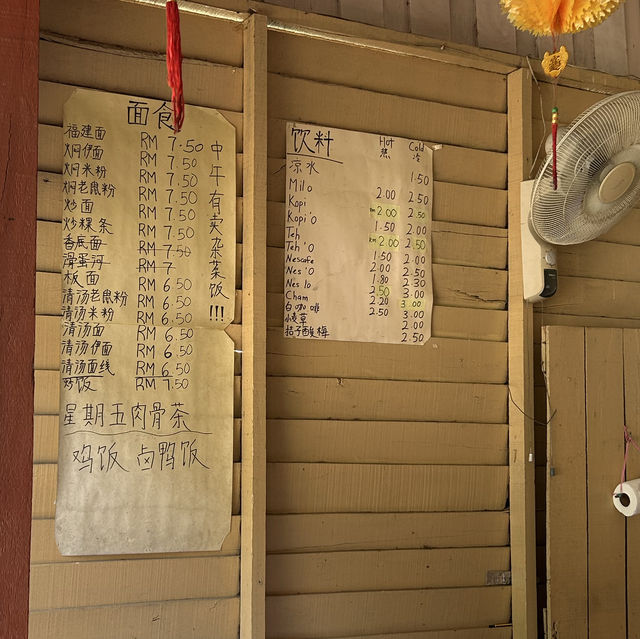 面食
福建面 RM 7.50
焖伊面 RM 7.50
焖米粉 RM 7.50
焖老鼠粉 RM 7.50
炒面 RM 7.50
炒粿条 RM 7.50
香底面 RM 7.50
滑蛋河 RM 7
板面 RM 6.50
清汤老鼠粉 RM 6.50
清汤米粉 RM 6.50
清汤面 RM 6.50
清汤伊面 RM 6.50
清汤面线 RM 6.50
炒饭 RM 7.50
中午有卖杂菜饭!!!
星期五肉骨茶
鸡饭 卤鸭饭
饮料 Hot Cold
热 冷
凉水 1.50
Milo 2.00 2.50
Kopi RM 2.00 2.50
Kopi'O 1.50 2.00
Teh RM 2.00 2.50
Teh'O 1.50 2.00
Nescafe 2.00 2.50
Nes'O 1.80 2.30
Nes lo 2.50 3.00
Cham 2.20 3.00
白咖啡 2.50 3.00
小麦草 2.00
桔子酸梅 2.50